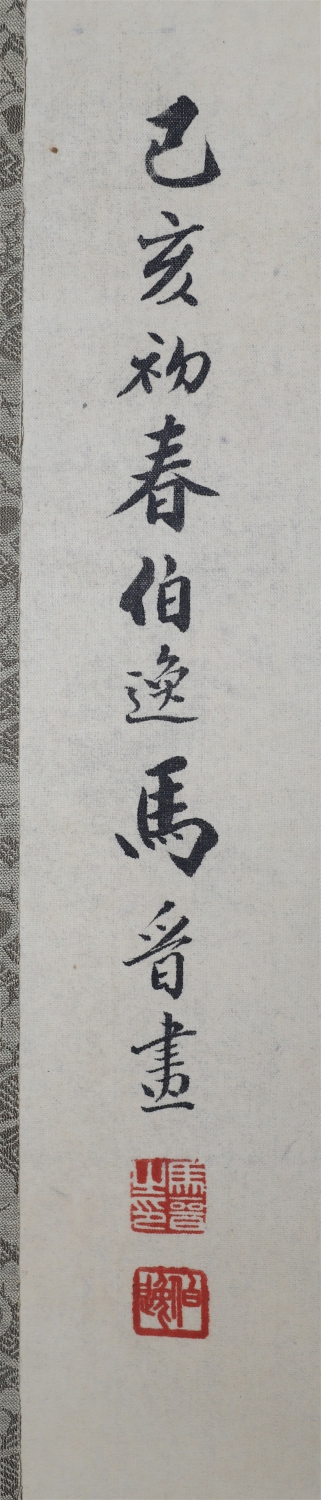 己亥初春伯逸馬晉畫
馬晉之印
伯逸